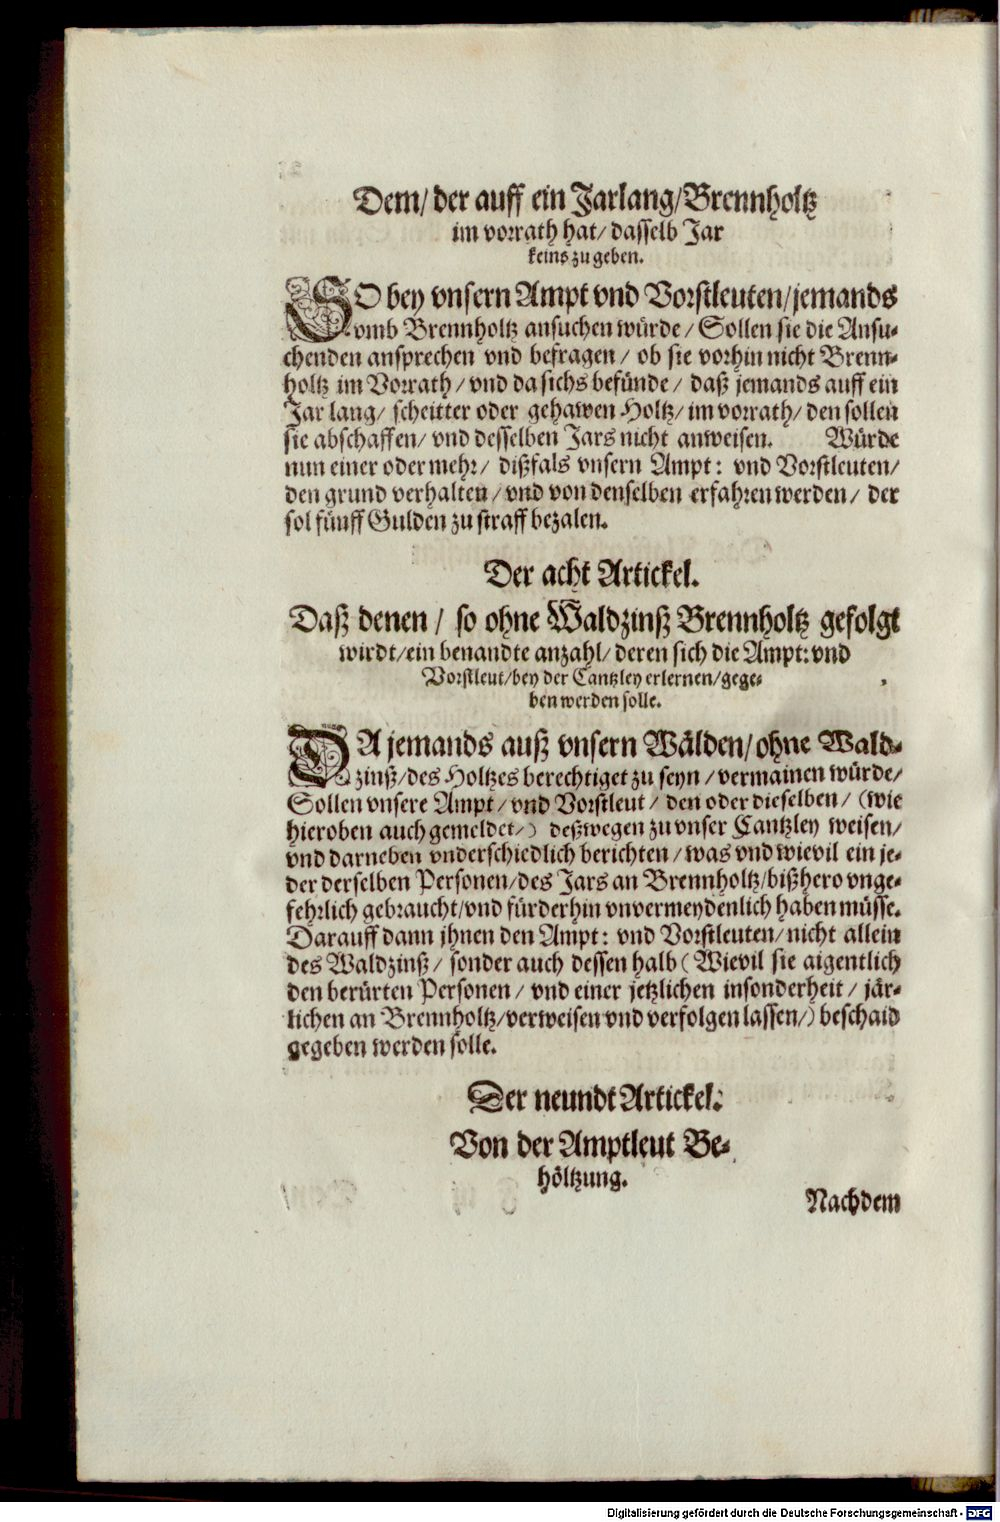 Dem/ der auff ein Jarlang/Brennholtz
im vorrath hat/ dasselb Jar
keins zu geben.
SO bey vnsern Ampt vnd Vorstleuten/jemands
vmb Brennholtz ansuchen würde/ Sollen sie die Ansu-
chenden ansprechen vnd befragen/ ob sie vorhin nicht Brenn-
holtz im Vorrath/ vnd da sichs befünde/ daß jemands auff ein
Jar lang/ scheitter oder gehawen Holtz/ im vorrath/ den sollen
sie abschaffen/ vnd desselben Jars nicht anweisen. Würde
nun einer oder mehr/ dißfals vnsern Ampt: vnd Vorstleuten/
den grund verhalten/ vnd von denselben erfahren werden/ der
sol fünff Gulden zu straff bezalen.
Der acht Artickel.
Daß denen/ so ohne Waldzinß Brennholtz gefolgt
wirdt/ein benandte anzahl/ deren sich die Ampt: vnd
Vorstleut/bey der Cantzley erlernen/gege-
ben werden solle.
DA jemands auß vnsern Wälden/ohne Wald-
zinß/des Holtzes berechtiget zu seyn/ vermainen würde/
Sollen vnsere Ampt/ vnd Vorstleut/ den oder dieselben/ (wie
hieroben auch gemeldet/) deßwegen zu vnser Cantzley weisen/
vnd darneben vnderschiedlich berichten/ was vnd wievil ein je-
der derselben Personen/des Jars an Brennholtz/bißhero vnge-
fehrlich gebraucht/vnd fürderhin vnvermeydenlich haben müsse.
Darauff dann jhnen den Ampt: vnd Vorstleuten/ nicht allein
des Waldzinß/ sonder auch dessen halb (Wievil sie aigentlich
den berürten Personen/ vnd einer jetzlichen insonderheit/ jär-
lichen an Brennholtz/verweisen vnd verfolgen lassen/) beschaid
gegeben werden solle.
Der neundt Artickel.
Von der Amptleut Be-
höltzung.
Nachdem
Digitalisierung gefördert durch die Deutsche Forschungsgemeinschaft - DFG